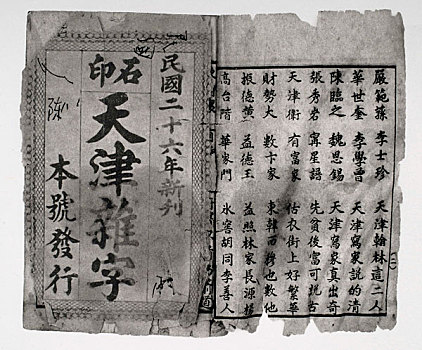 民國二十六年新刊
石印
天津雜字
本號發行
嚴範孫 李士珍 天津翰林這二人
華世奎 李學曾 天津寫家說的清
陳臨之 魏恩錫 天津寫家真出奇
張秀岩 甯星譜 先貧後富可說古
天津衛 有富家 估衣街上好繁華
財勢大 數卞家 東韓西穆也數他
振德黃 益德王 益照林家長源楊
高台階 華家門 冰窖胡同李善人